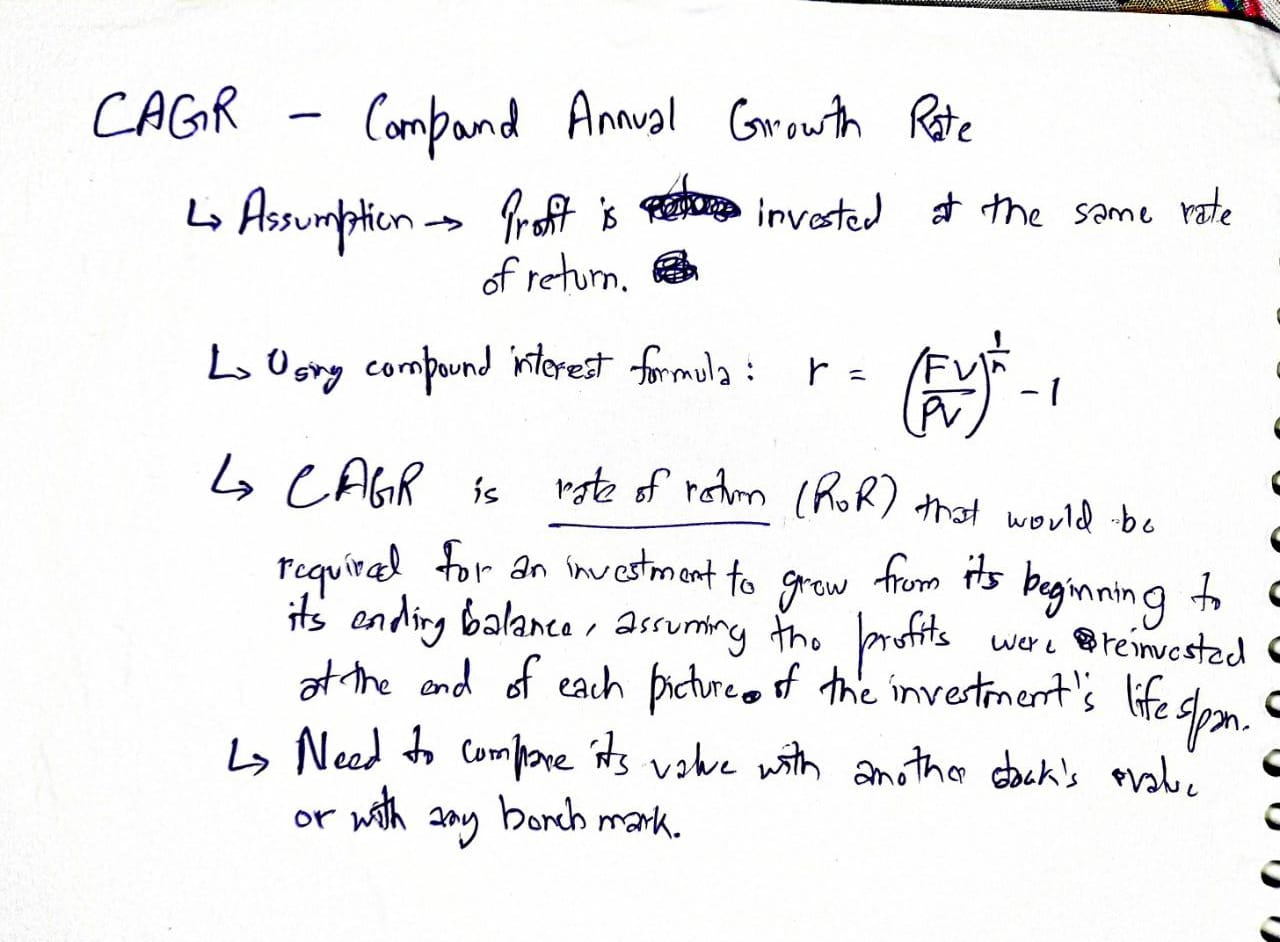 CAGR - Compand Annual Growth Rate
↳ Assumption → Profit is invested at the same rate
of return.
↳ Using compound interest formula : r = (FV/PV)^(1/n) - 1
↳ CAGR is rate of return (RoR) that would be
required for an investment to grow from its beginning to
its ending balance, assuming the profits were reinvested
at the end of each picture of the investment's life span.
↳ Need to compare its value with another stock's value
or with any bench mark.